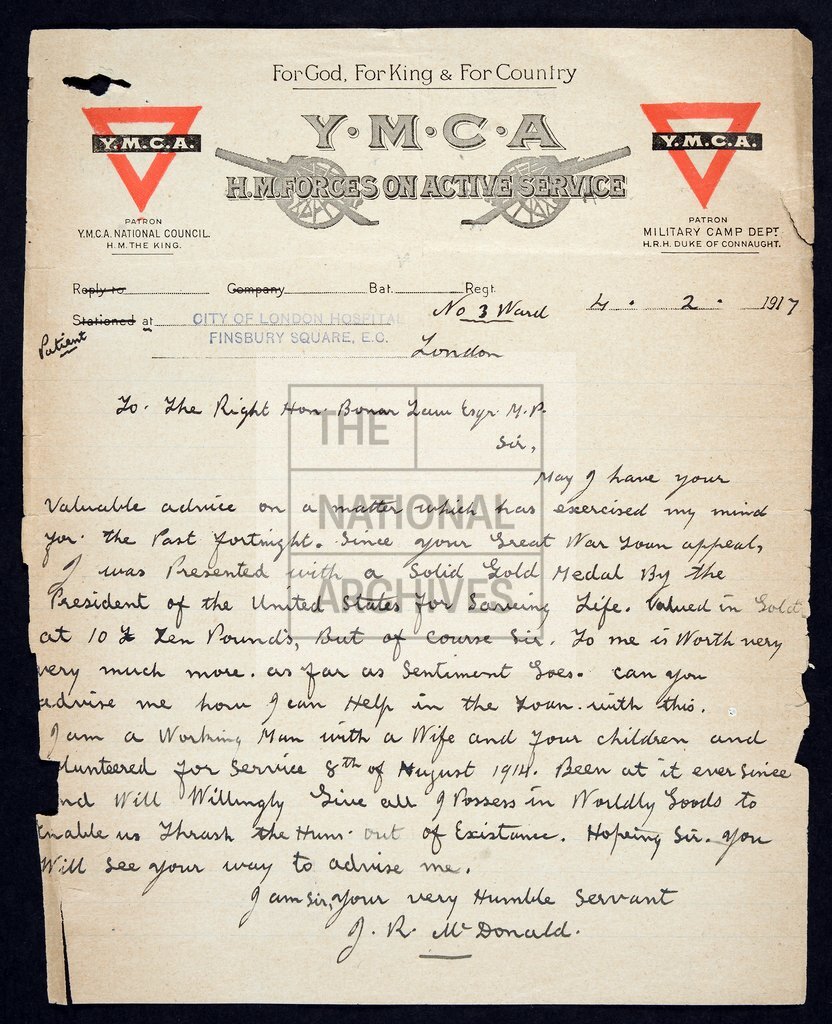 For God, For King & For Country
Y·M·C·A
H.M. FORCES ON ACTIVE SERVICE
Y.M.C.A.
PATRON
Y.M.C.A. NATIONAL COUNCIL.
H.M. THE KING.
Y.M.C.A.
PATRON
MILITARY CAMP DEPT
H.R.H. DUKE OF CONNAUGHT.
Reply to Company Bat. Regt.
Stationed at CITY OF LONDON HOSPITAL No 3 Ward 4. 2. 1917
Patient FINSBURY SQUARE, E.C. London
To. The Right Hon. Bonar Law Esqr. M.P.
Sir,
May I have your
Valuable advice on a matter which has exercised my mind
for the Past fortnight. Since your Great War Loan appeal,
I was Presented with a Solid Gold Medal By the
President of the United States for Saving Life. Valued in Gold
at 10 £ Ten Pounds, But of course Sir. To me is Worth very
very much more. as far as Sentiment Goes. can you
advise me how I can Help in the Loan. with this.
I am a Working Man with a Wife and four children and
lunteered for Service 8th of August 1914. Been at it ever since
nd Will Willingly Give all I Possess in Worldly Goods to
enable us Thrash the Huns. out of Existance. Hoping Sir. you
Will see your way to advise me.
I am Sir, your very Humble Servant
J. R. McDonald.
THE
NATIONAL
ARCHIVES